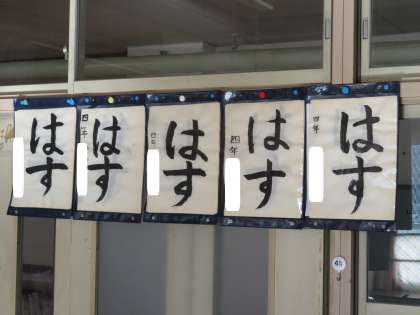 はす
四年
はす
はす
四年
はす
四年
はす